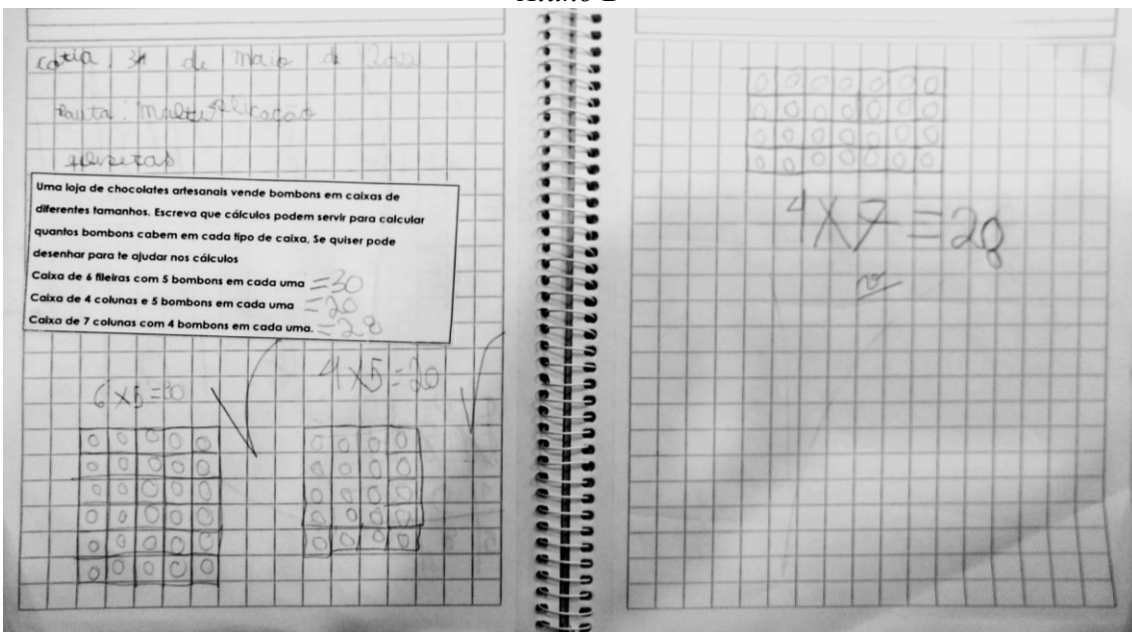 cotia 31 de maio d
Pauta: Multiplicação
Uma loja de chocolates artesanais vende bombons em caixas de
diferentes tamanhos. Escreva que cálculos podem servir para calcular
quantos bombons cabem em cada tipo de caixa. Se quiser pode
desenhar para te ajudar nos cálculos
Caixa de 6 fileiras com 5 bombons em cada uma =30
Caixa de 4 colunas e 5 bombons em cada uma =20
Caixa de 7 colunas com 4 bombons em cada uma. =28
6x5=30
4x5=20
4x7=28